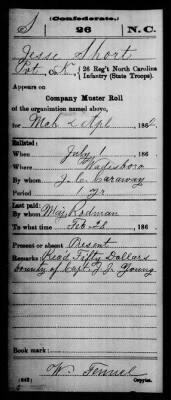 (Confederate.)
S 26 N.C.
Jesse Short
Pvt, Co. K, 26 Reg't North Carolina
Infantry (State Troops).
Appears on
Company Muster Roll
of the organization named above,
for Mch & Apl, 186
Enlisted:
When July 1, 186
Where Wadesboro
By whom J. C. Caraway
Period 1 Yr
Last paid:
By whom Maj. Rodman
To what time Feb. 28, 186
Present or absent Present
Remarks: Rec'd Fifty Dollars
bounty of Capt. J. J. Young
Book mark:
W. Fennel
(642) Copyist.